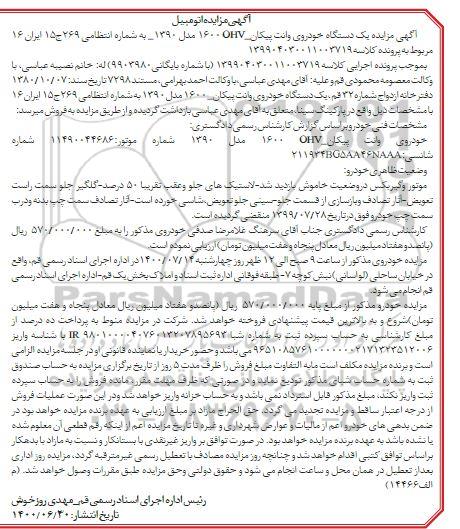 آگهی مزایده اتومبیل
آگهی مزایده یک دستگاه خودروی وانت پیکان_ OHV ۱۶۰۰ مدل ۱۳۹۰_ به شماره انتظامی ۲۶۹ج۱۵ ایران ۱۶
مربوط به پرونده کلاسه ۱۳۹۹۰۴۰۳۰۰۱۱۰۰۳۷۱۹
بموجب پرونده اجرایی کلاسه ۱۳۹۹۰۴۰۳۰۰۱۱۰۰۳۷۱۹ (با شماره بایگانی ۹۹۰۳۹۸۰) له: خانم نصیبه عباسی، با
وکالت معصومه محمودی قم و علیه: آقای مهدی عباسی، با وکالت احمد بهرامی، مستند ۷۲۹۸ تاریخ سند: ۱۳۸۰/۱۰/۰۷
دفترخانه ازدواج شماره ۳۲ قم، یک دستگاه خودروی وانت پیکان_ ۱۶۰۰ مدل ۱۳۹۰ به شماره انتظامی ۲۶۹ج۱۵ ایران ۱۶
با مشخصات ذیل واقع در پارکینگ سینا، متعلق به آقای مهدی عباسی بازداشت گردیده و از طریق مزایده به فروش میرسد:
مشخصات فنی خودرو بر اساس گزارش کارشناس رسمی دادگستری:
خودروی وانت پیکان_ OHV ۱۶۰۰ مدل ۱۳۹۰ شماره موتور: ۱۱۴۹۰۰۴۴۶۸۶ شماره
شاسی: ۲۱۱۹۳۴BG۵AA۴۶NAAA
وضعیت ظاهری خودرو:
موتور و گیربکس در وضعیت خاموش بازدید شد-لاستیک های جلو وعقب تقریبا ۵۰ درصد-گلگیر جلو سمت راست
تعویض-آثار تصادف وبازسازی از قسمت جلو-سینی جلو تعویض،شاسی خورده است-آثار تصادف سمت چپ بدنه ودرب
سمت چپ خودرو فوق در تاریخ ۱۳۹۹/۰۷/۲۸ منقضی گردیده است.
کارشناس رسمی دادگستری جناب آقای سرهنگ غلامرضا صدقی خودروی مذکور را به مبلغ ۵۷۰/۰۰۰/۰۰۰ ریال
(پانصدوهفتاد میلیون ریال معادل پنجاه و هفت میلیون تومان) ارزیابی نموده است.
مزایده خودروی مذکور از ساعت ۹ صبح الی ۱۲ ظهر روز چهارشنبه ۱۴۰۰/۰۷/۱۴ در اداره اجرای اسناد رسمی قم، واقع
در خیابان ساحلی (لواسانی) نبش کوچه ۷-طبقه فوقانی اداره ثبت اسناد و املاک بخش یک قم-اداره اجرای اسناد رسمی
قم انجام می شود.
مزایده خودرو مذکور از مبلغ پایه ۵۷۰/۰۰۰/۰۰۰ ریال (پانصدو هفتاد میلیون ریال معادل پنجاه و هفت میلیون
تومان) شروع و به بالاترین قیمت پیشنهادی فروخته خواهد شد. شرکت در مزایده منوط به پرداخت ده درصد از
مبلغ کارشناسی به حساب سپرده ثبت به شماره شبا IR ۹۸۰۱۰۰۰۰۴۰۷۶۰۱۳۲۰۷۸۹۵۶۹۳ با شناسه واریز
می باشد و حضور خریدار یا نماینده قانونی او در جلسه مزایده الزامی
است و برنده مزایده مکلف است مابه التفاوت مبلغ فروش را ظرف مدت ۵ روز از تاریخ برگزاری مزایده به حساب صندوق
ثبت به شماره حساب شبای مذکور تودیع نماید و در صورتی که ظرف مهلت مقرر، مانده فروش را به حساب سپرده
ثبت واریز نکند، مبلغ مذکور قابل استرداد نمی باشد و به حساب خزانه واریز خواهد شد و در این صورت عملیات فروش
از درجه اعتبار ساقط و مزایده تجدید می گردد. حق الحراج مازاد بر مبلغ ارزیابی به عهده برنده مزایده خواهد بود در
ضمن بدهی های خودرو اعم از مالیات و عوارض شهرداری و غیره تا تاریخ مزایده اعم از اینکه رقم قطعی آن معلوم شده
یا نشده باشد به عهده برنده مزایده خواهد بود. در صورت توافق بر واریز غیرنقدی با بستانکار و نسبت به مازاد با بدهکار
براساس توافق کتبی اقدام خواهد شد و چنانچه روز مزایده مصادف با تعطیل رسمی غیرمترقبه گردد، مزایده روز اداری
بعد از تعطیل در همان محل و ساعت انجام می شود و حقوق دولتی وحق مزایده طبق مقررات وصول خواهد شد. (م
الف ۱۴۴۶۶)
رئیس اداره اجرای اسناد رسمی قم_مهدی روزخوش
تاریخ انتشار: ۱۴۰۰/۰۶/۳۰